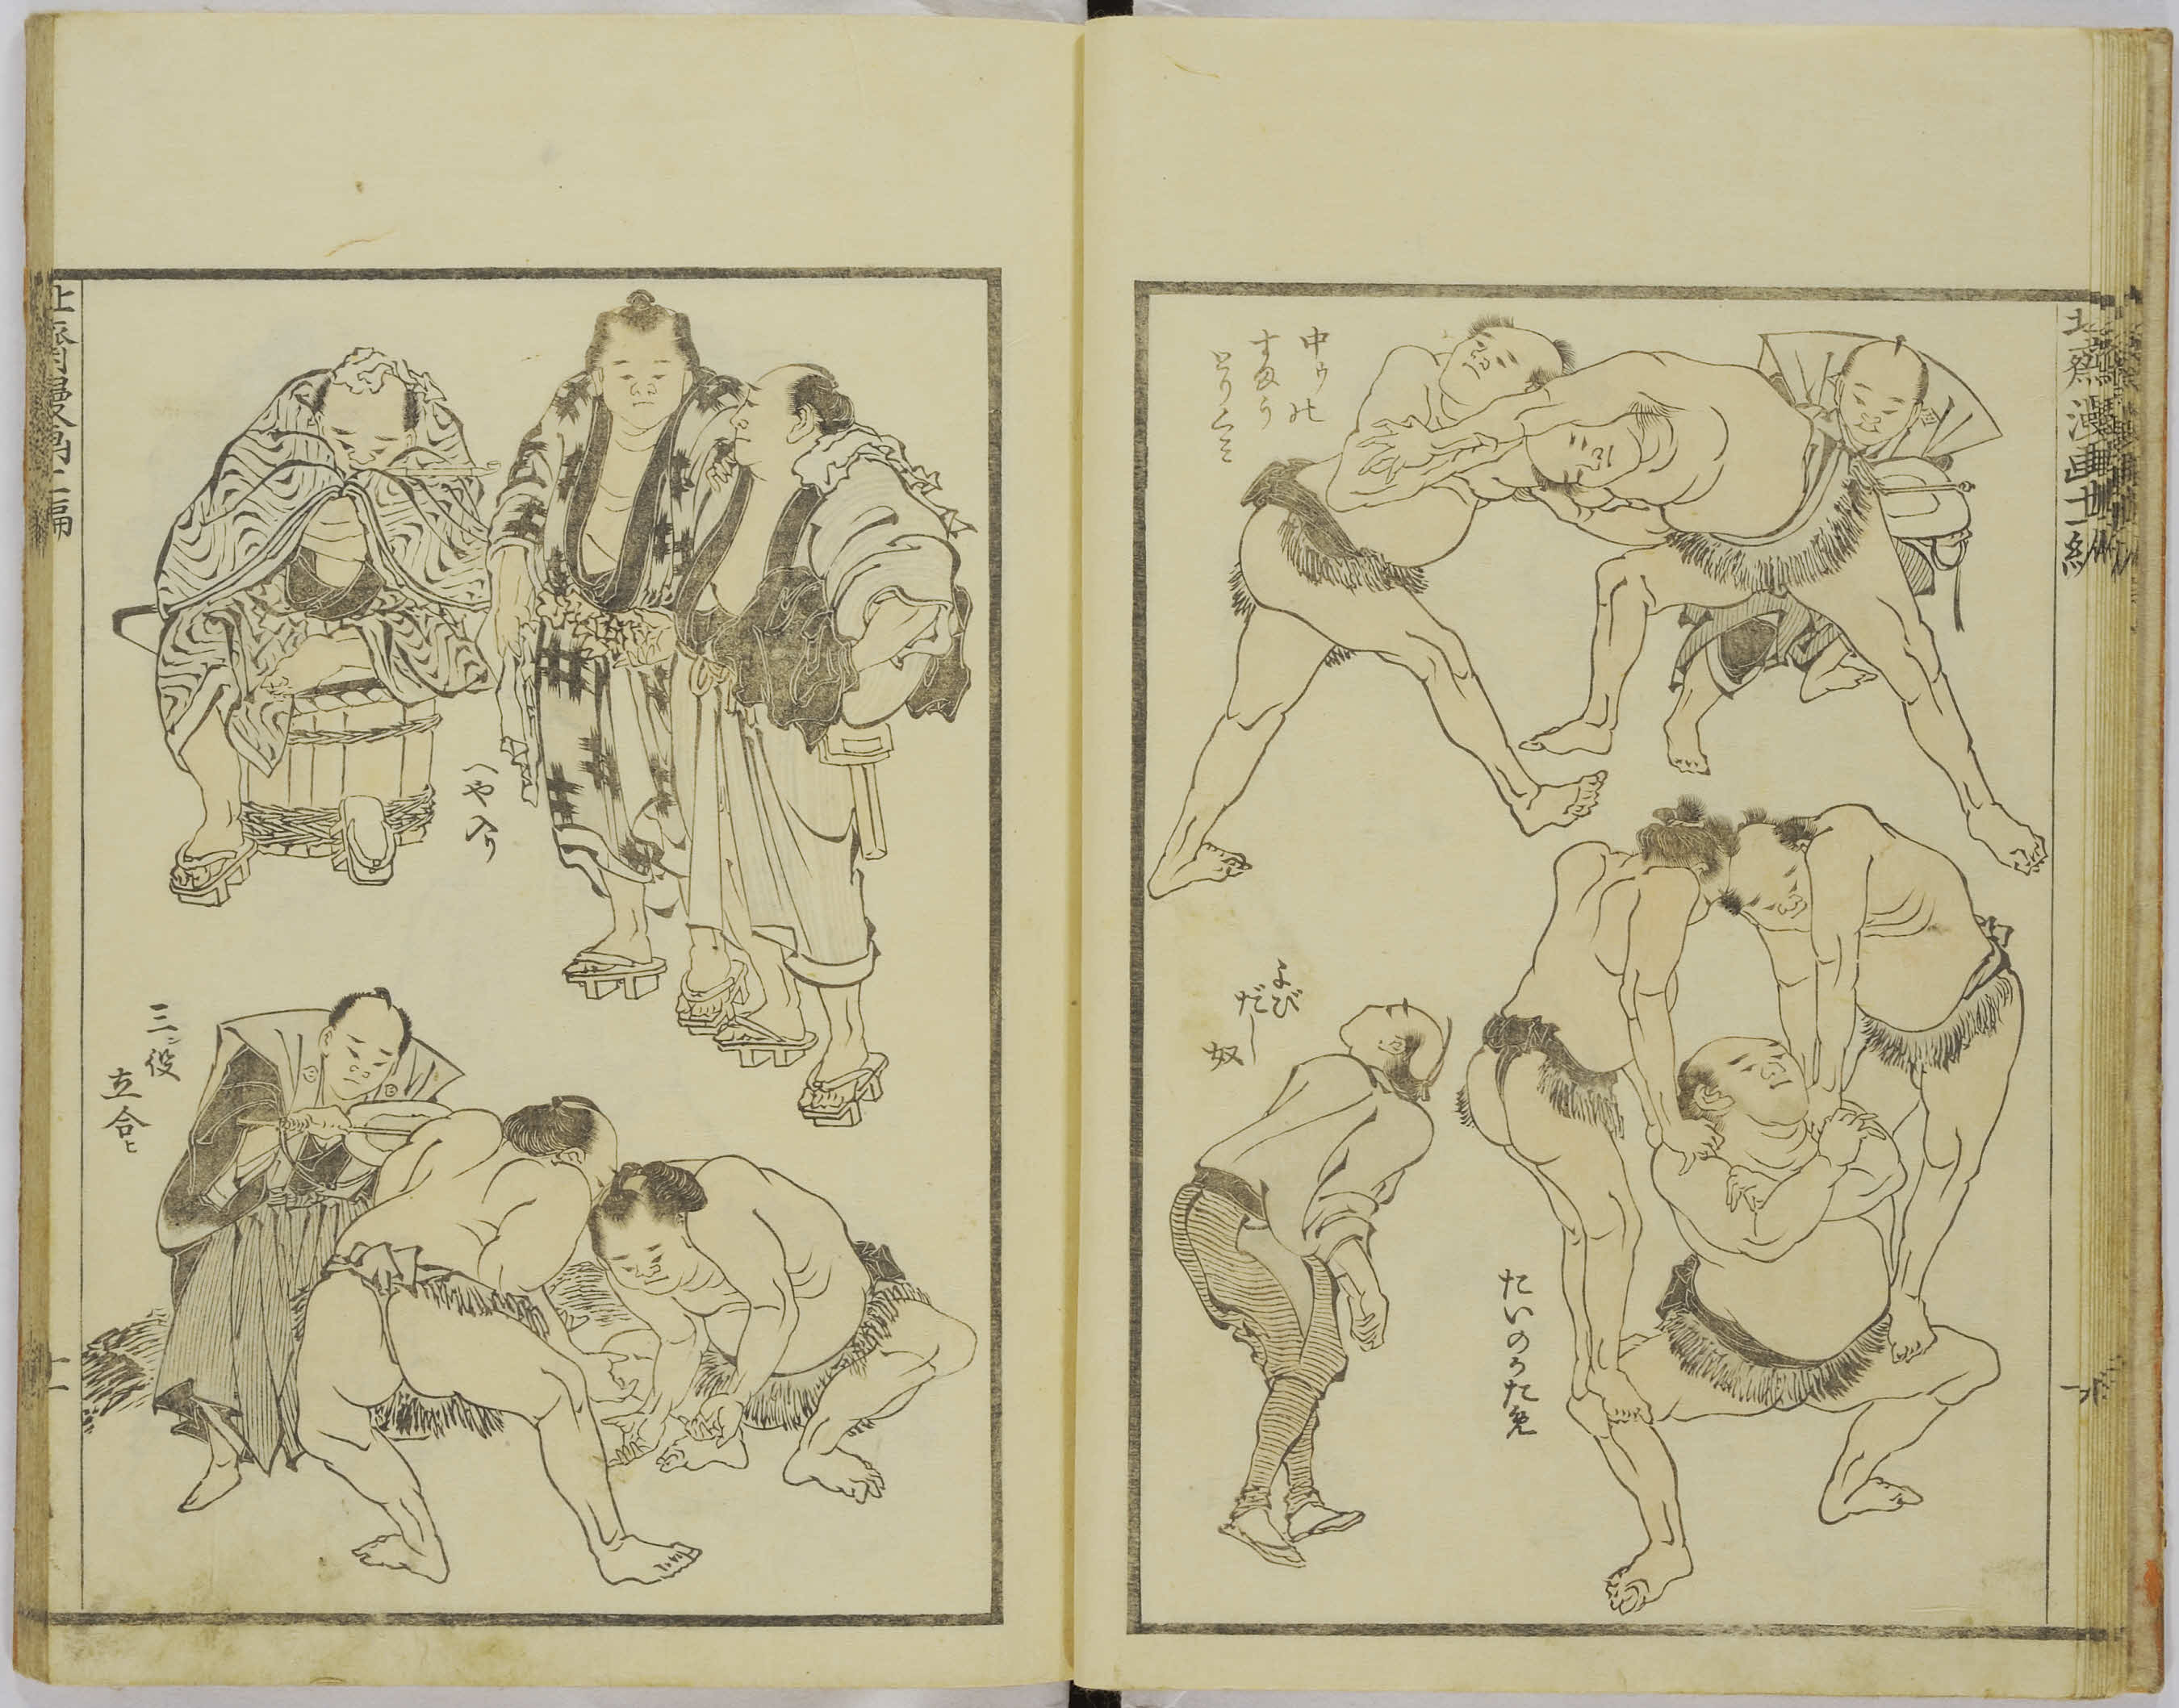 北斎漫画十一編
中ウの
すまう
とりくミ
よび
だし
奴
たいのかため
へや入り
三ン役
立合ヒ
北斎漫画十一編
十一